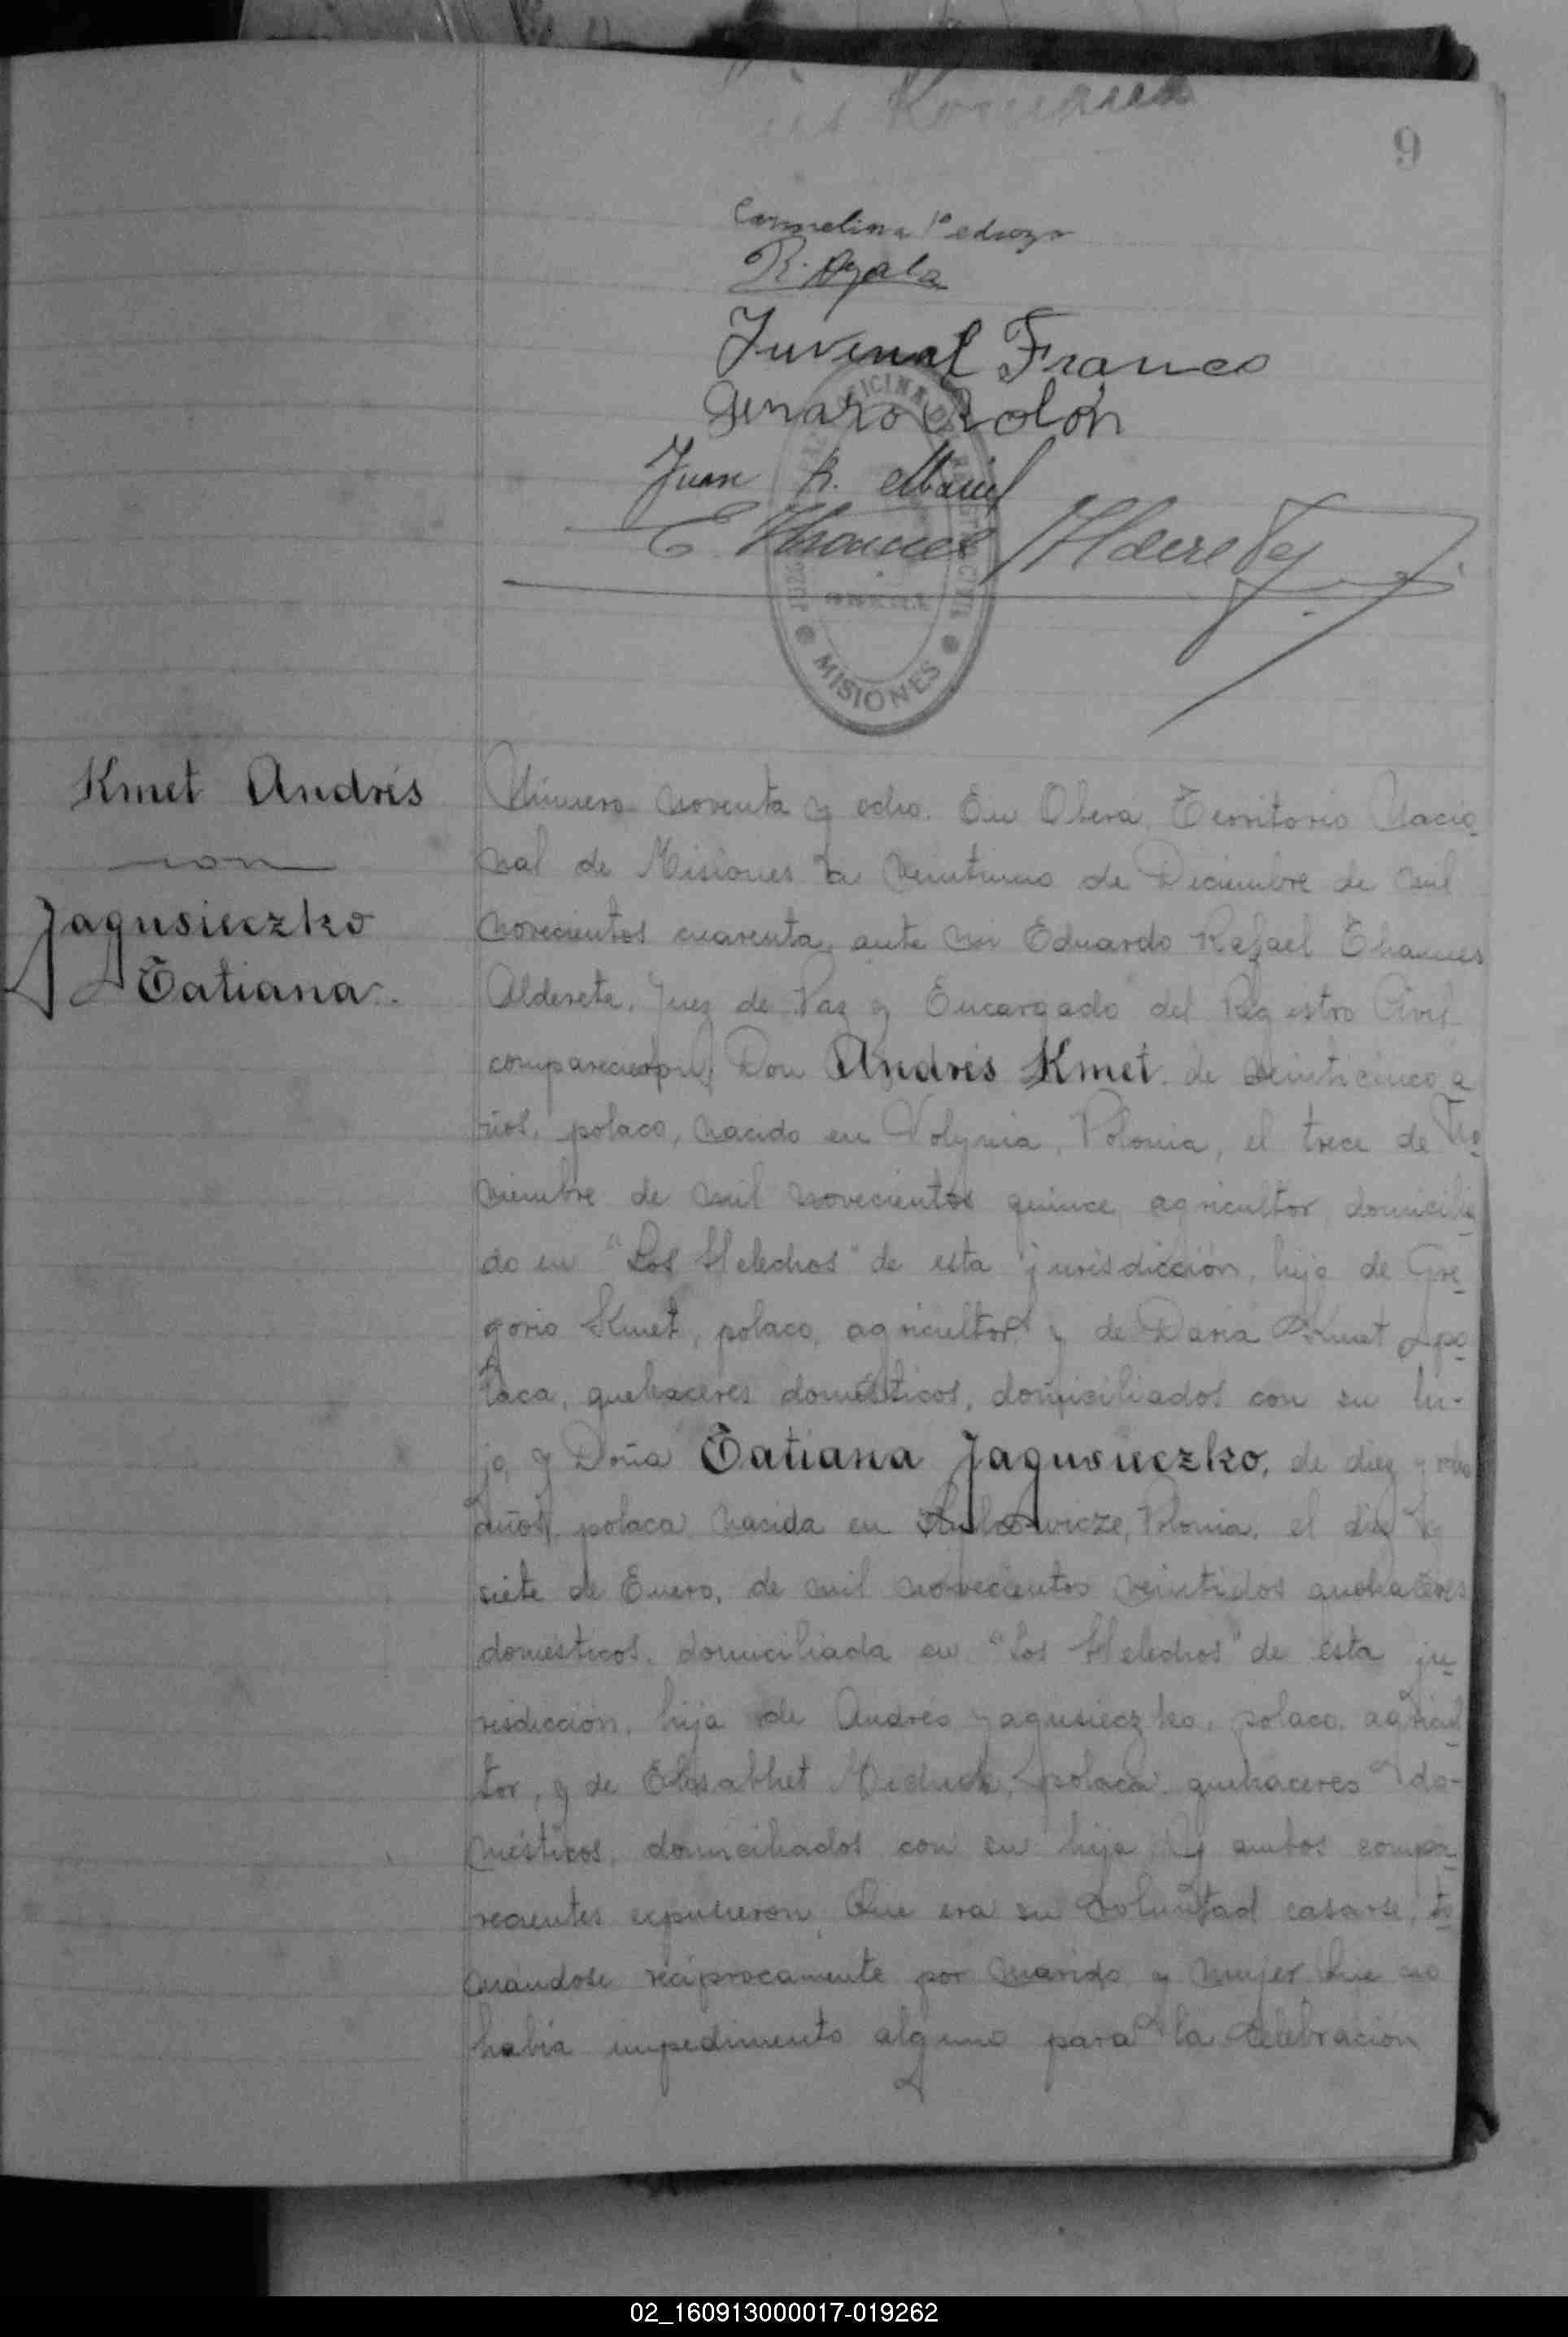 9
Carmelina Pedrozo
R. Ayala
Juvenal Franco
Genaro Rolón
Juan R.
E Thames Alderete
OFICINA
MISIONES
Kmet Andrés
con
Jagusieczko
Tatiana.
Número noventa y ocho. En Oberá, Territorio Nacio
nal de Misiones a veintiuno de Diciembre de mil
novecientos cuarenta, ante mi Eduardo Rafael Thames
Alderete, Juez de Paz y Encargado del Registro Civil
comparecieron, Don Andrés Kmet, de veinticinco a
ños, polaco, nacido en Volynia, Polonia, el trece de No
viembre de mil novecientos quince, agricultor, domicilia
do en "Los Helechos" de esta jurisdicción, hijo de Gre
gorio Kmet, polaco, agricultor y de Daria Kmet, po
laca, quehaceres domésticos, domiciliados con su hi-
jo, y Doña Tatiana Jagusieczko, de diez y ocho
años, polaca, nacida en Polonia, el diez y
siete de Enero, de mil novecientos veintidos quehaceres
domésticos, domiciliada en "Los Helechos" de esta ju
risdicción, hija de Andrés Yagusieczko, polaco, agricul
tor, y de Elisabhet polaca, quehaceres do-
mésticos, domiciliados con su hija. Y ambos compa
recientes expusieron: Que era su voluntad casarse, to
mándose recíprocamente por marido y mujer. Que no
había impedimento alguno para la celebración
02_160913000017-019262